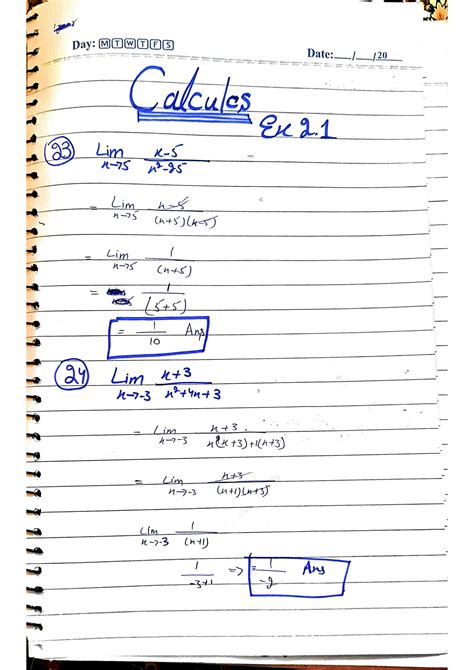 Day: M T W T F S
Date:__/__/20__
Calculos
Ex 2.1
23 Lim x→5 x-5 / x²-25
= Lim x→5 x-5 / (x+5)(x-5)
= Lim x→5 1 / (x+5)
= 1 / (5+5)
= 1/10 Ans
24 Lim x→-3 x+3 / x²+4x+3
= Lim x→-3 x+3 / x(x+3)+1(x+3)
= Lim x→-3 x+3 / (x+1)(x+3)
Lim x→-3 1 / (x+1)
1 / -3+1 => = 1 / -2 Ans